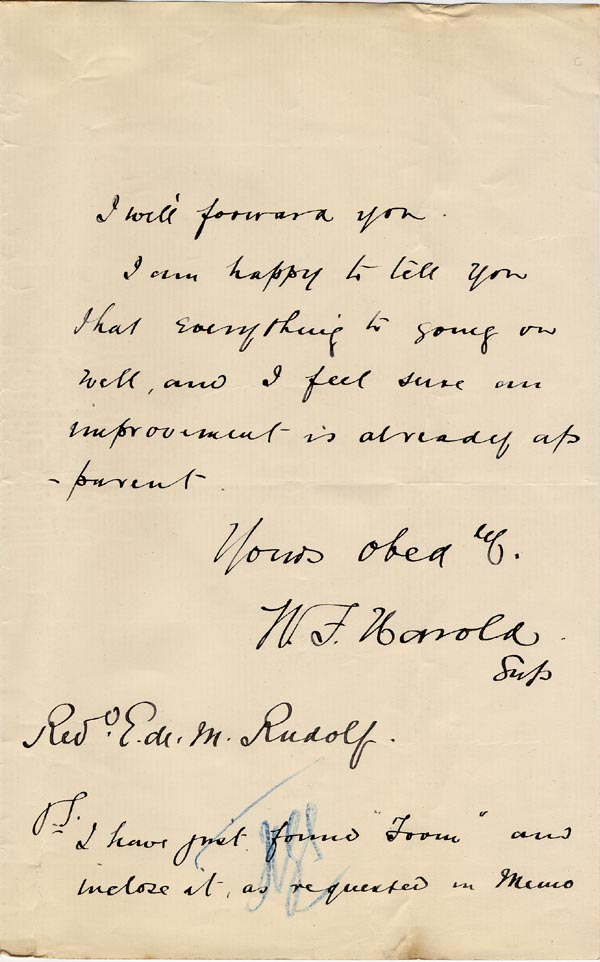 I will forward you.
I am happy to tell you
that everything is going on
well, and I feel sure an
improvement is already ap
- parent.
Yours obed ly.
W. F. Harold.
Sup
Revd. E. de. M. Rudolf.
PS.
I have just found "Form" and
inclose it, as requested in Memo